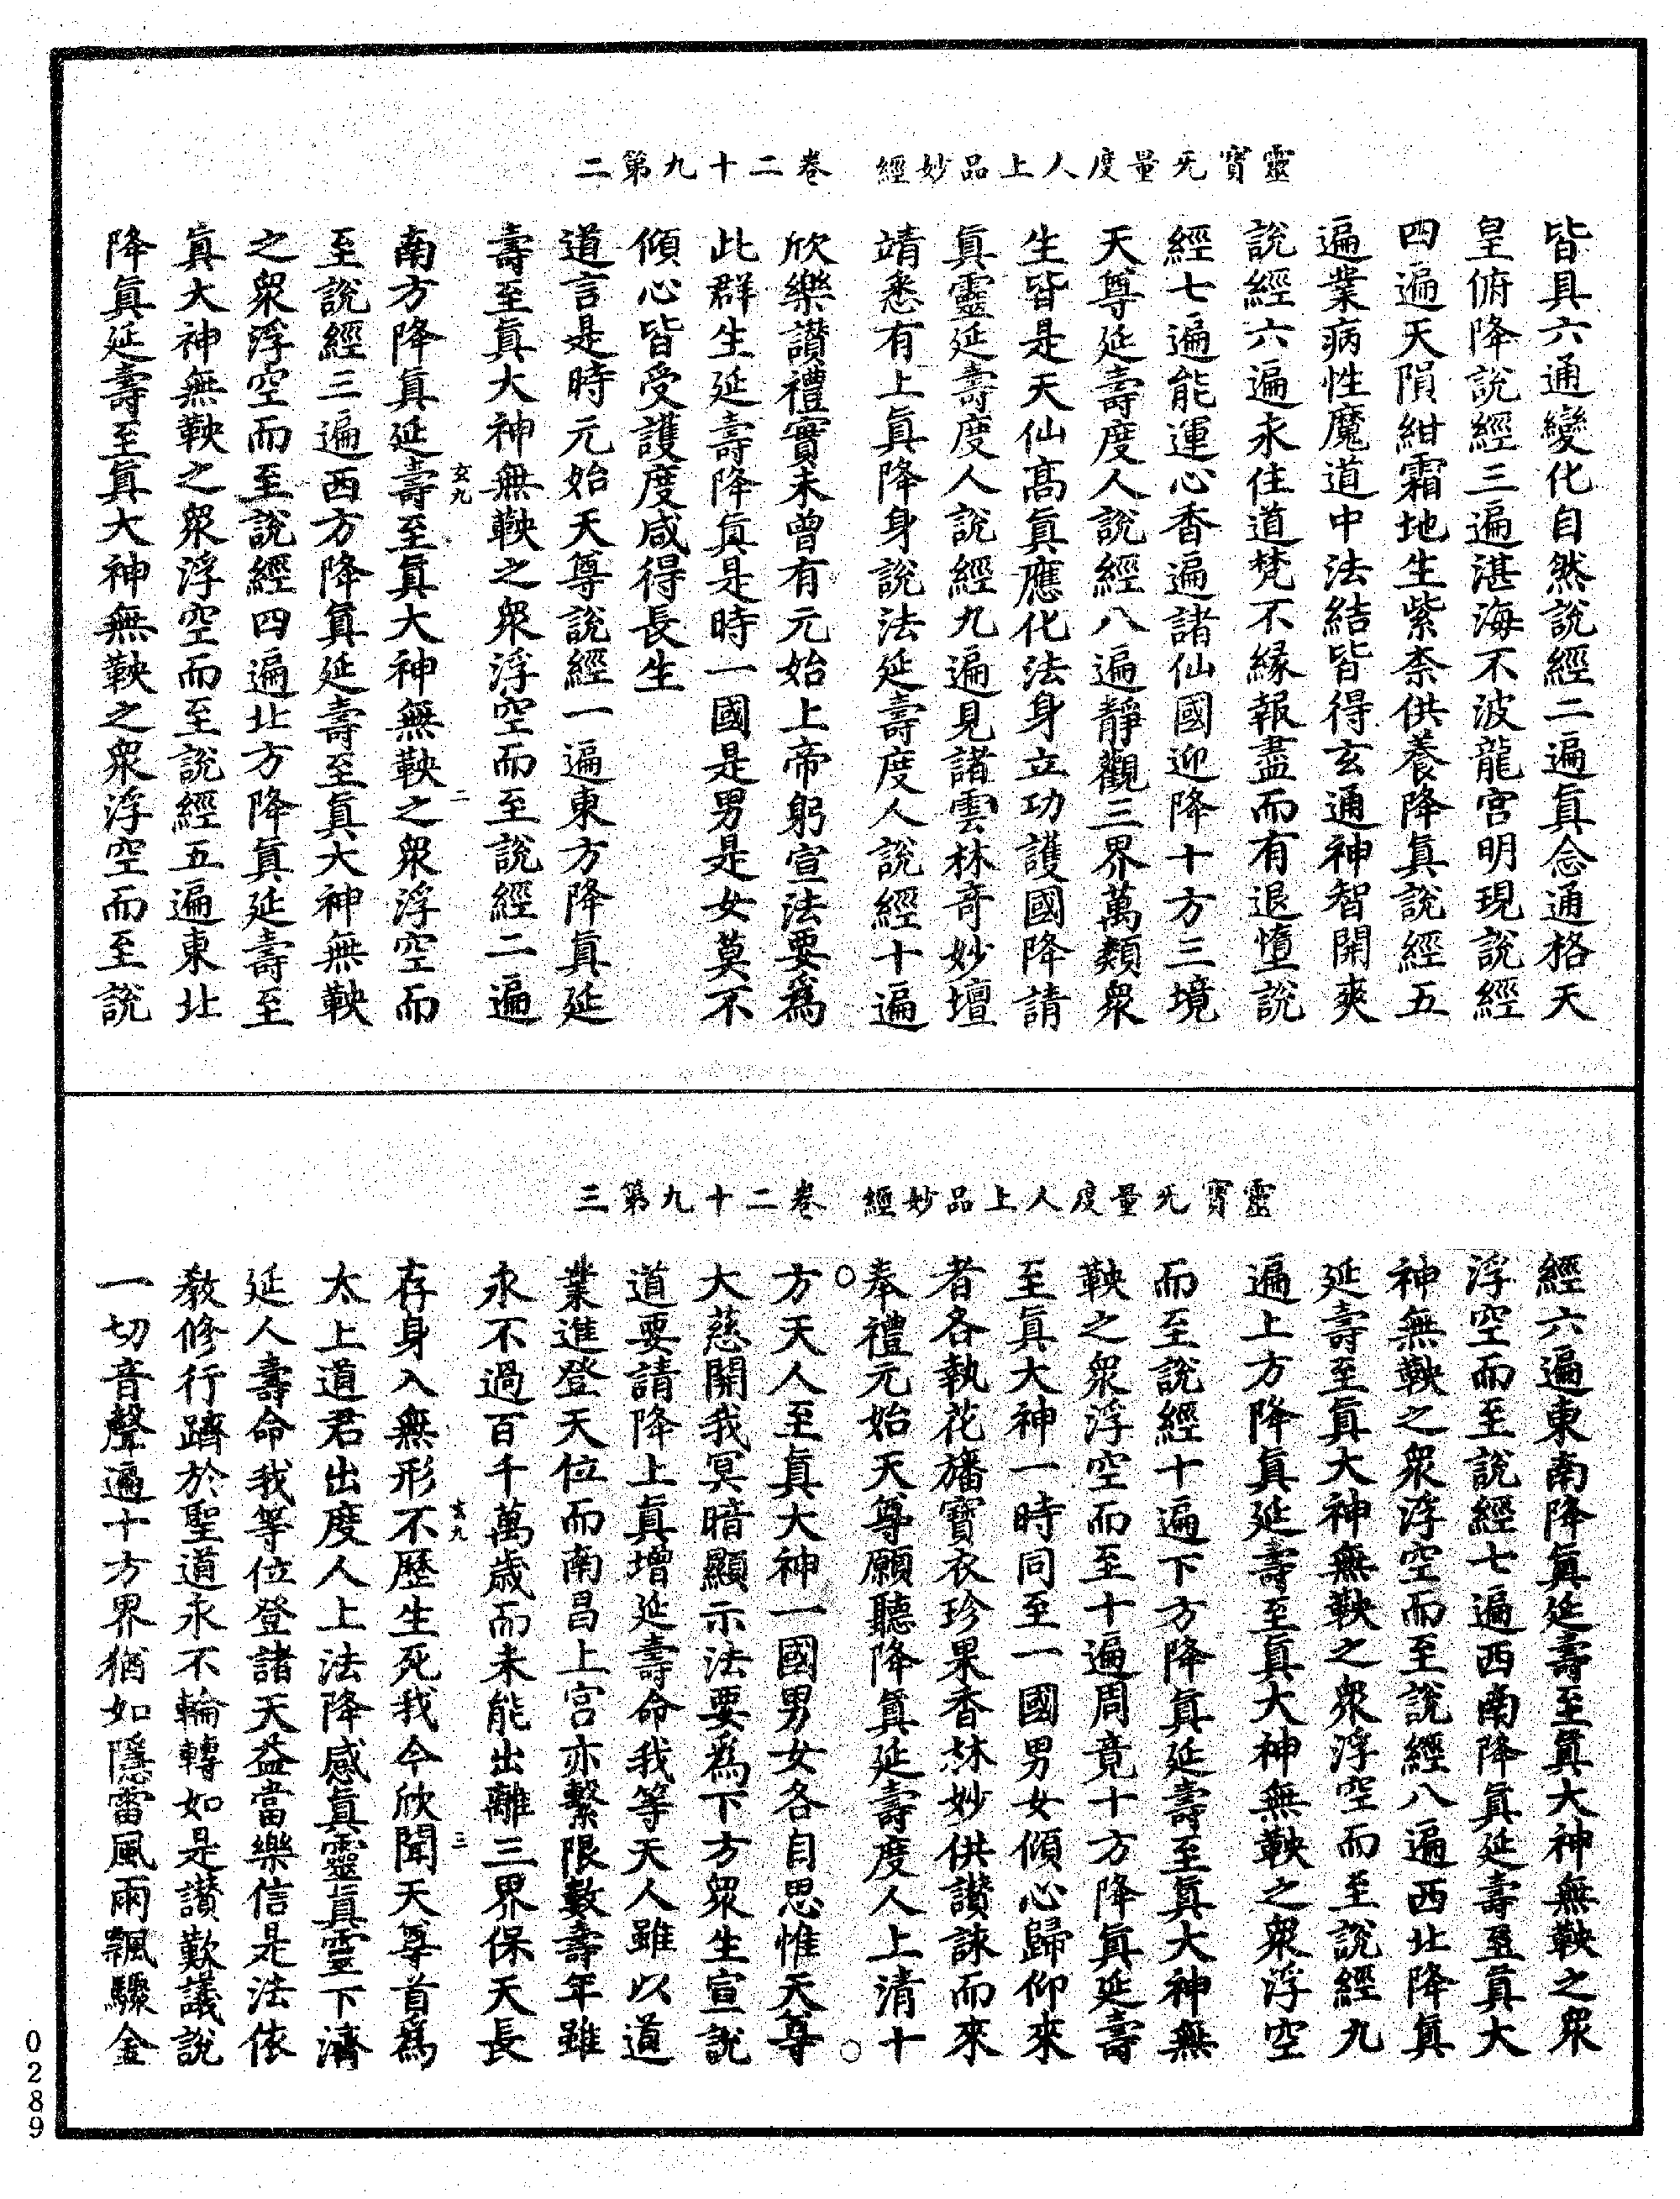 靈寶无量度人上品妙經　卷二十九第二
皆具六通變化自然說經二遍眞念通格天
皇俯降說經三遍湛海不波龍宮明現說經
四遍天隕紺霜地生紫柰供養降眞說經五
遍業病性魔道中法結皆得玄通神智開爽
說經六遍永住道梵不緣報盡而有退墮說
經七遍能運心香遍諸仙國迎降十方三境
天尊延壽度人說經八遍靜觀三界萬類衆
生皆是天仙高眞應化法身立功護國降請
眞靈延壽度人說經九遍見諸雲林竒妙壇
靖悉有上眞降身說法延壽度人說經十遍
欣樂讚禮實未曾有元始上帝躬宣法要爲
此群生延壽降眞是時一國是男是女莫不
傾心皆受護度咸得長生
道言是時元始天尊說經一遍東方降眞延
壽至眞大神無鞅之衆浮空而至說經二遍
玄九　二
南方降眞延壽至眞大神無鞅之衆浮空而
至說經三遍西方降眞延壽至眞大神無鞅
之衆浮空而至說經四遍北方降眞延壽至
眞大神無鞅之衆浮空而至說經五遍東北
降眞延壽至眞大神無鞅之衆浮空而至說
靈寶无量度人上品妙經　卷二十九第三
經六遍東南降眞延壽至眞大神無鞅之衆
浮空而至說經七遍西南降眞延壽至眞大
神無鞅之衆浮空而至說經八遍西北降眞
延壽至眞大神無鞅之衆浮空而至說經九
遍上方降眞延壽至眞大神無鞅之衆浮空
而至說經十遍下方降眞延壽至眞大神無
鞅之衆浮空而至十遍周竟十方降眞延壽
至眞大神一時同至一國男女傾心歸仰來
者各執花旛寶衣珍果香林妙供讚誄而來
奉禮元始天尊願聽降眞延壽度人上清十
○　○
方天人至眞大神一國男女各自思惟天尊
大慈開我冥暗顯示法要爲下方衆生宣說
道要請降上眞增延壽命我等天人雖以道
業進登天位而南昌上宮亦繫限數壽年雖
永不過百千萬歲而未能出離三界保天長
玄九　三
存身入無形不歷生死我今欣聞天尊首爲
太上道君出度人上法降感眞靈眞靈下濟
延人壽命我等位登諸天益當樂信是法依
教修行躋於聖道永不輪轉如是讚歎議說
一切音聲遍十方界猶如隱雷風雨飄驟金
0289